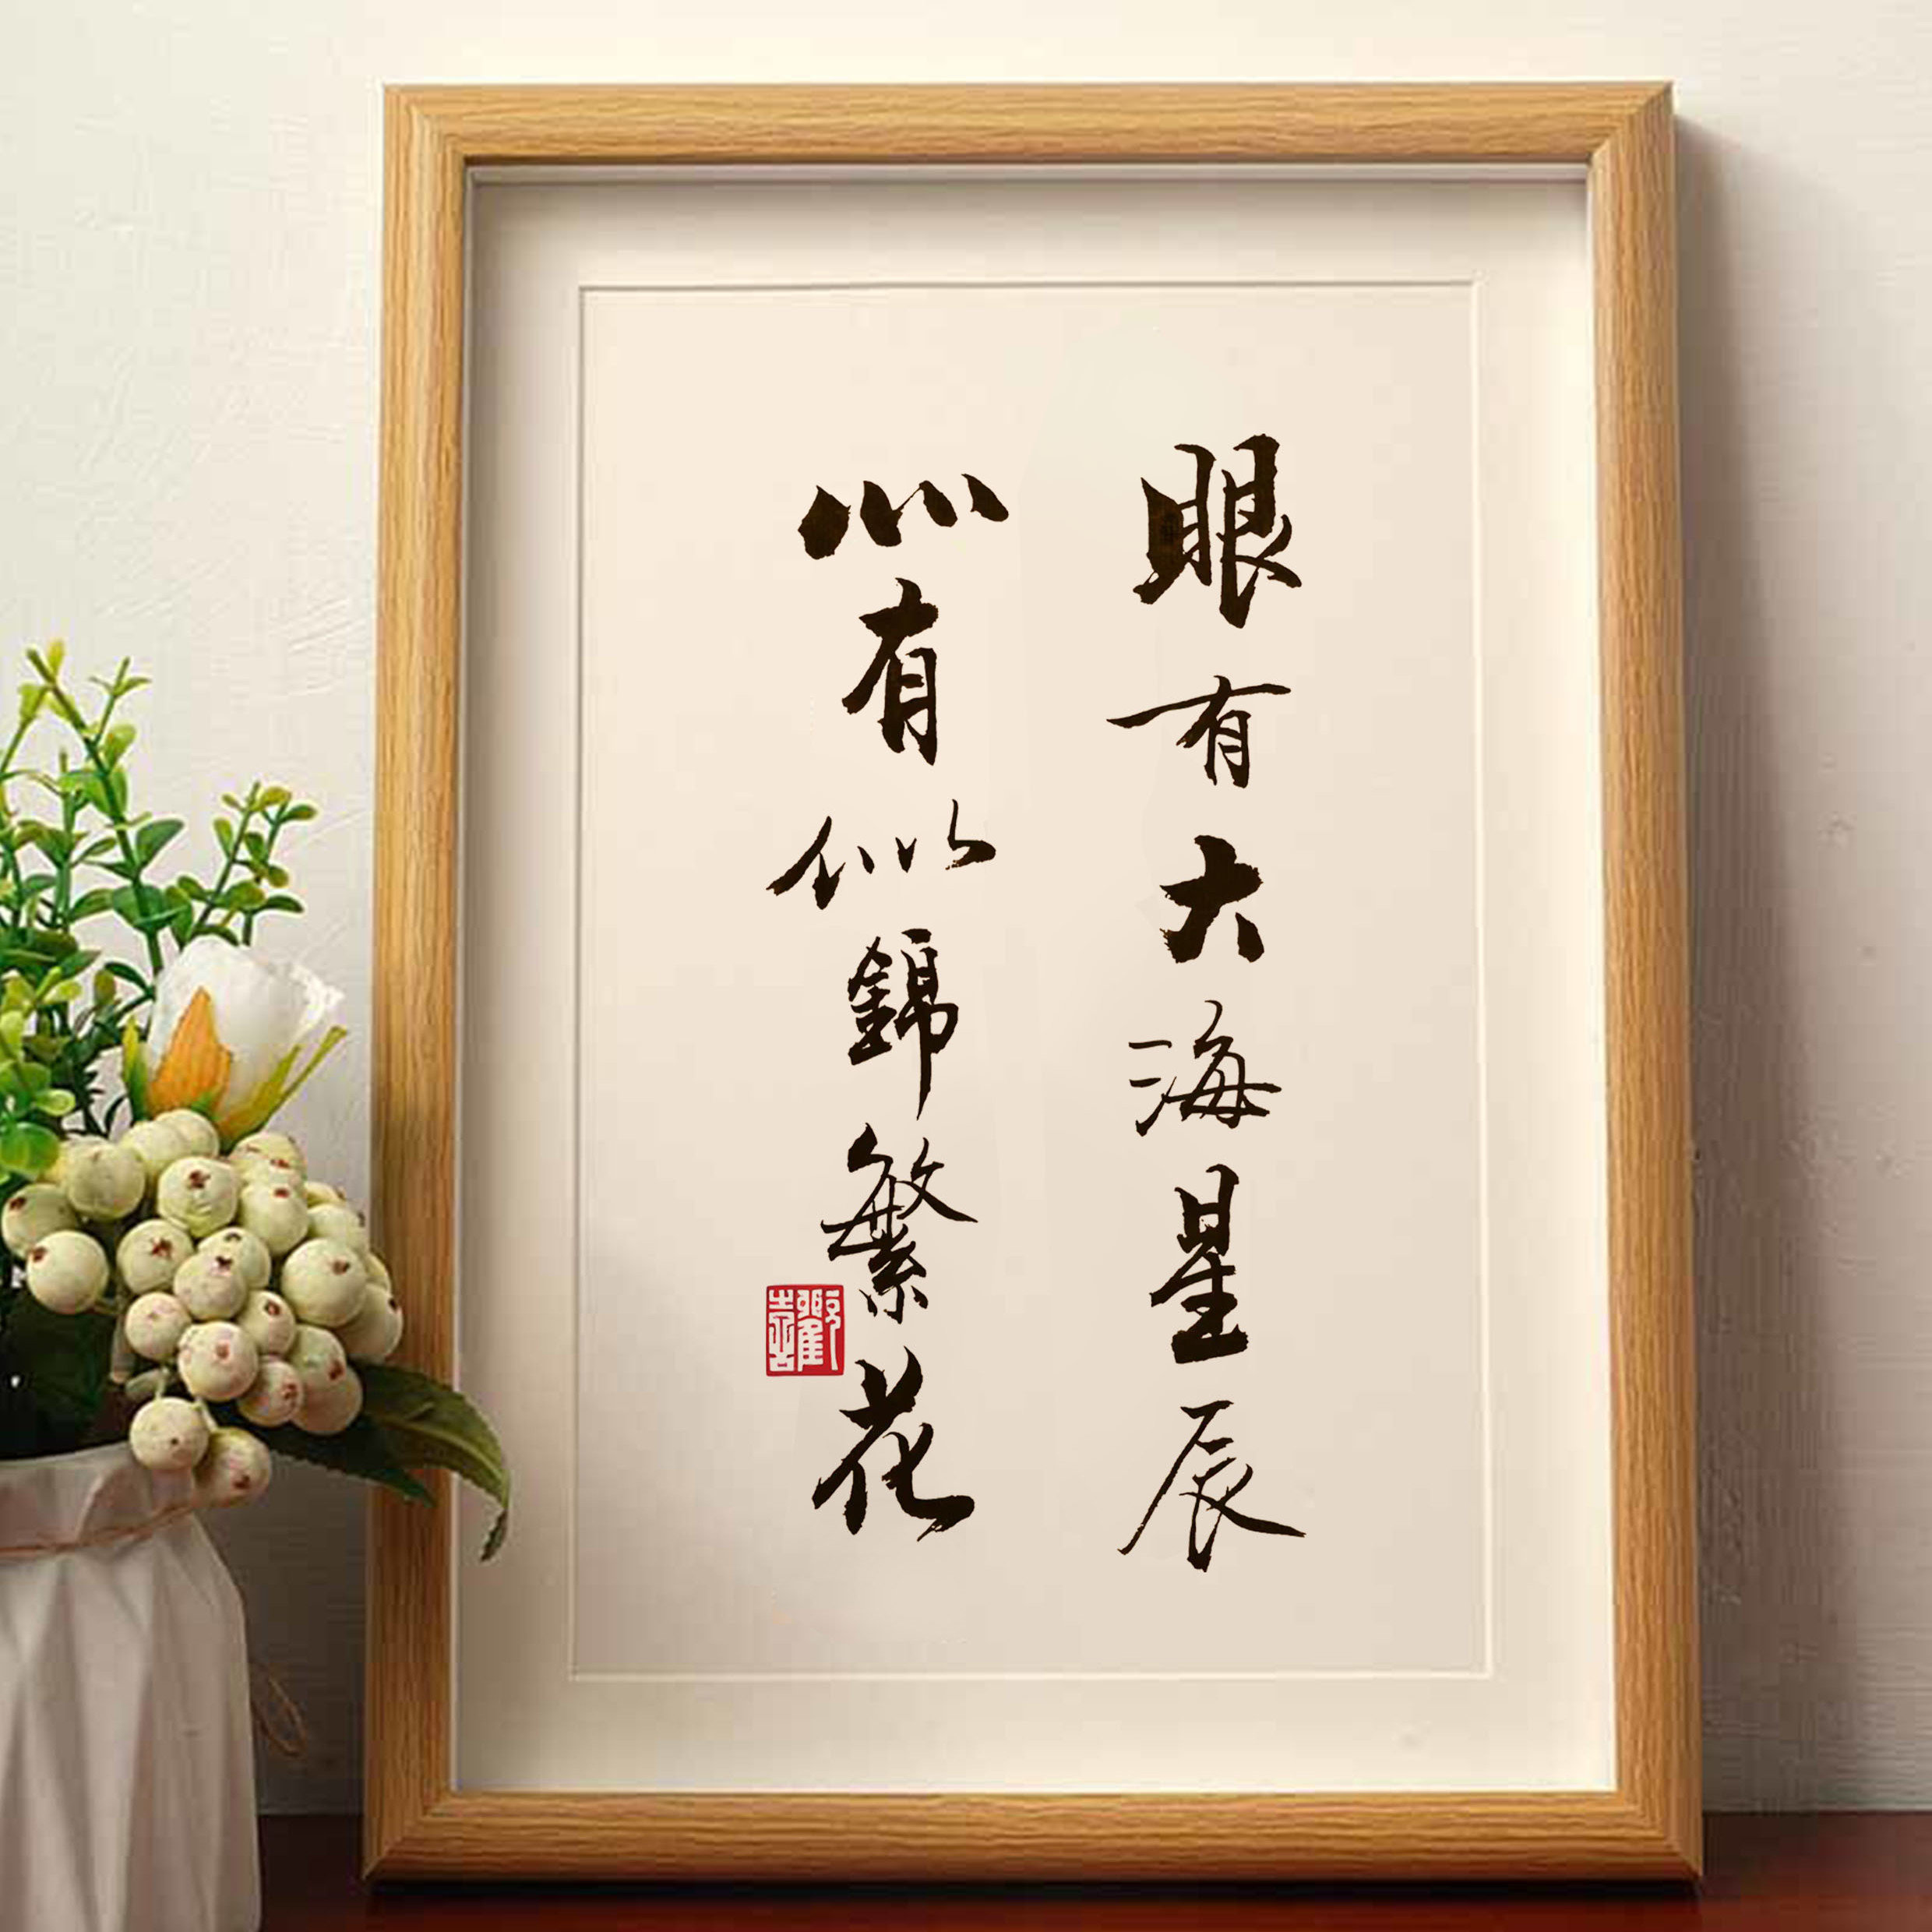 眼有大海星辰
心有似錦繁花
歡喜